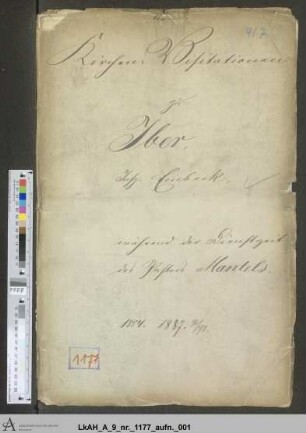 417
Kirchen-Visitationen
zu
Iber.
Insp. Einbeck.
während der Dienstzeit
des Pastors Mantels
1884. 1887.
1177
1177
LkAH_A_9_nr._1177_aufn._001